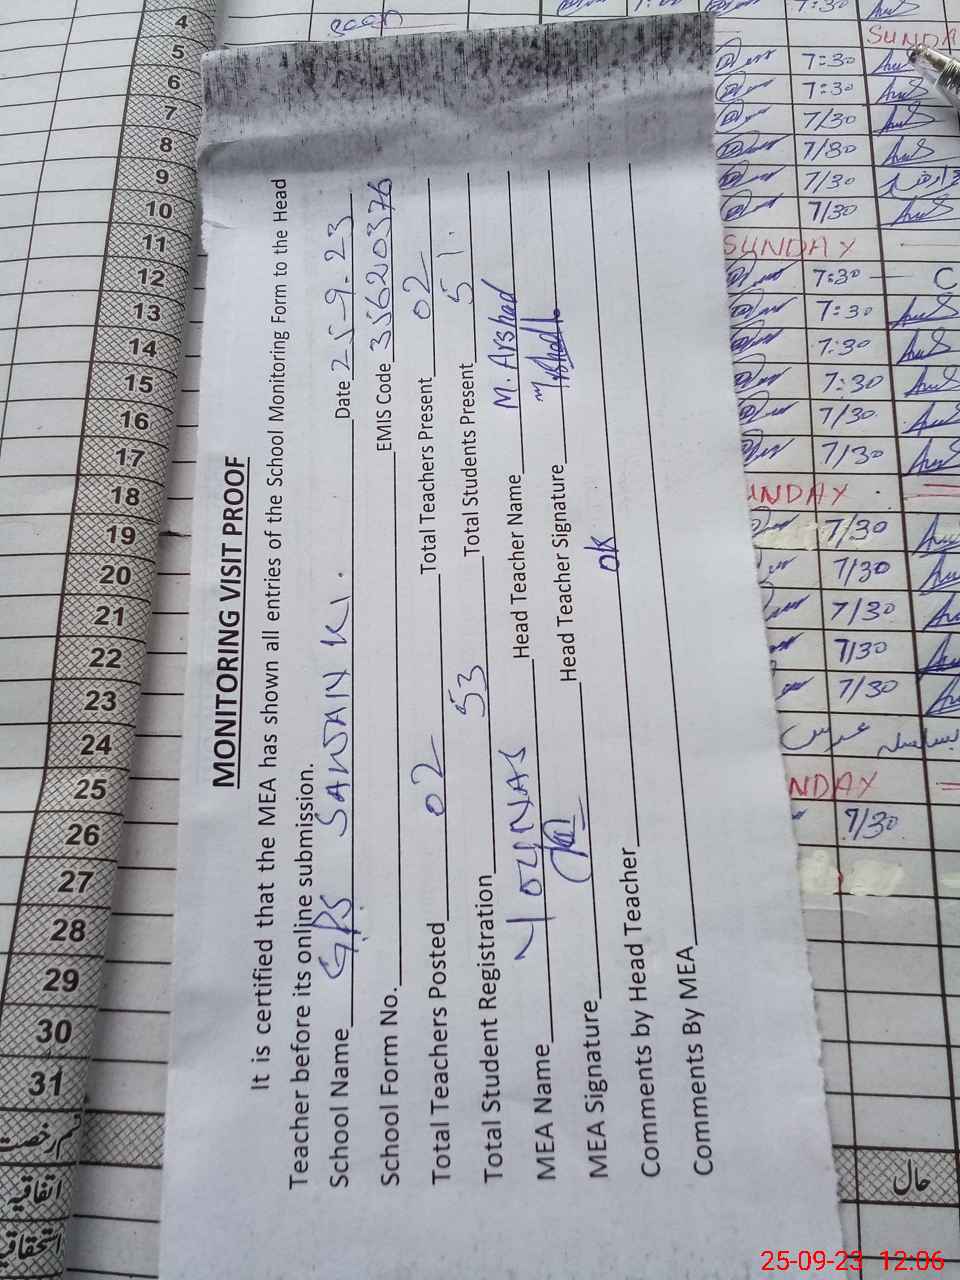 MONITORING VISIT PROOF
It is certified that the MEA has shown all entries of the School Monitoring Form to the Head
Teacher before its online submission.
School Name GPS SAWAN KI. Date 25-9-23
School Form No. EMIS Code 35620376
Total Teachers Posted 02 Total Teachers Present 02
Total Student Registration 53 Total Students Present 51.
MEA Name YOUNAS Head Teacher Name M. Arshad
MEA Signature Head Teacher Signature
Comments by Head Teacher ok
Comments By MEA
4
5 SUNDAY
6 7:30
7 7:30
8 7/30
9 7/30
10 7/30
11 7/30
12 SUNDAY
13 7:30 C
14 7:30
15 7:30
16 7:30
17 7/30
18 7/30
19 SUNDAY
20 7/30
21 7/30
22 7/30
23 7/30
24 7/30
25
26 SUNDAY
27 7/30
28
29
30
31
قسم رخصت
اتفاقیہ
استحقاقیہ
حال
25-09-23 12:06